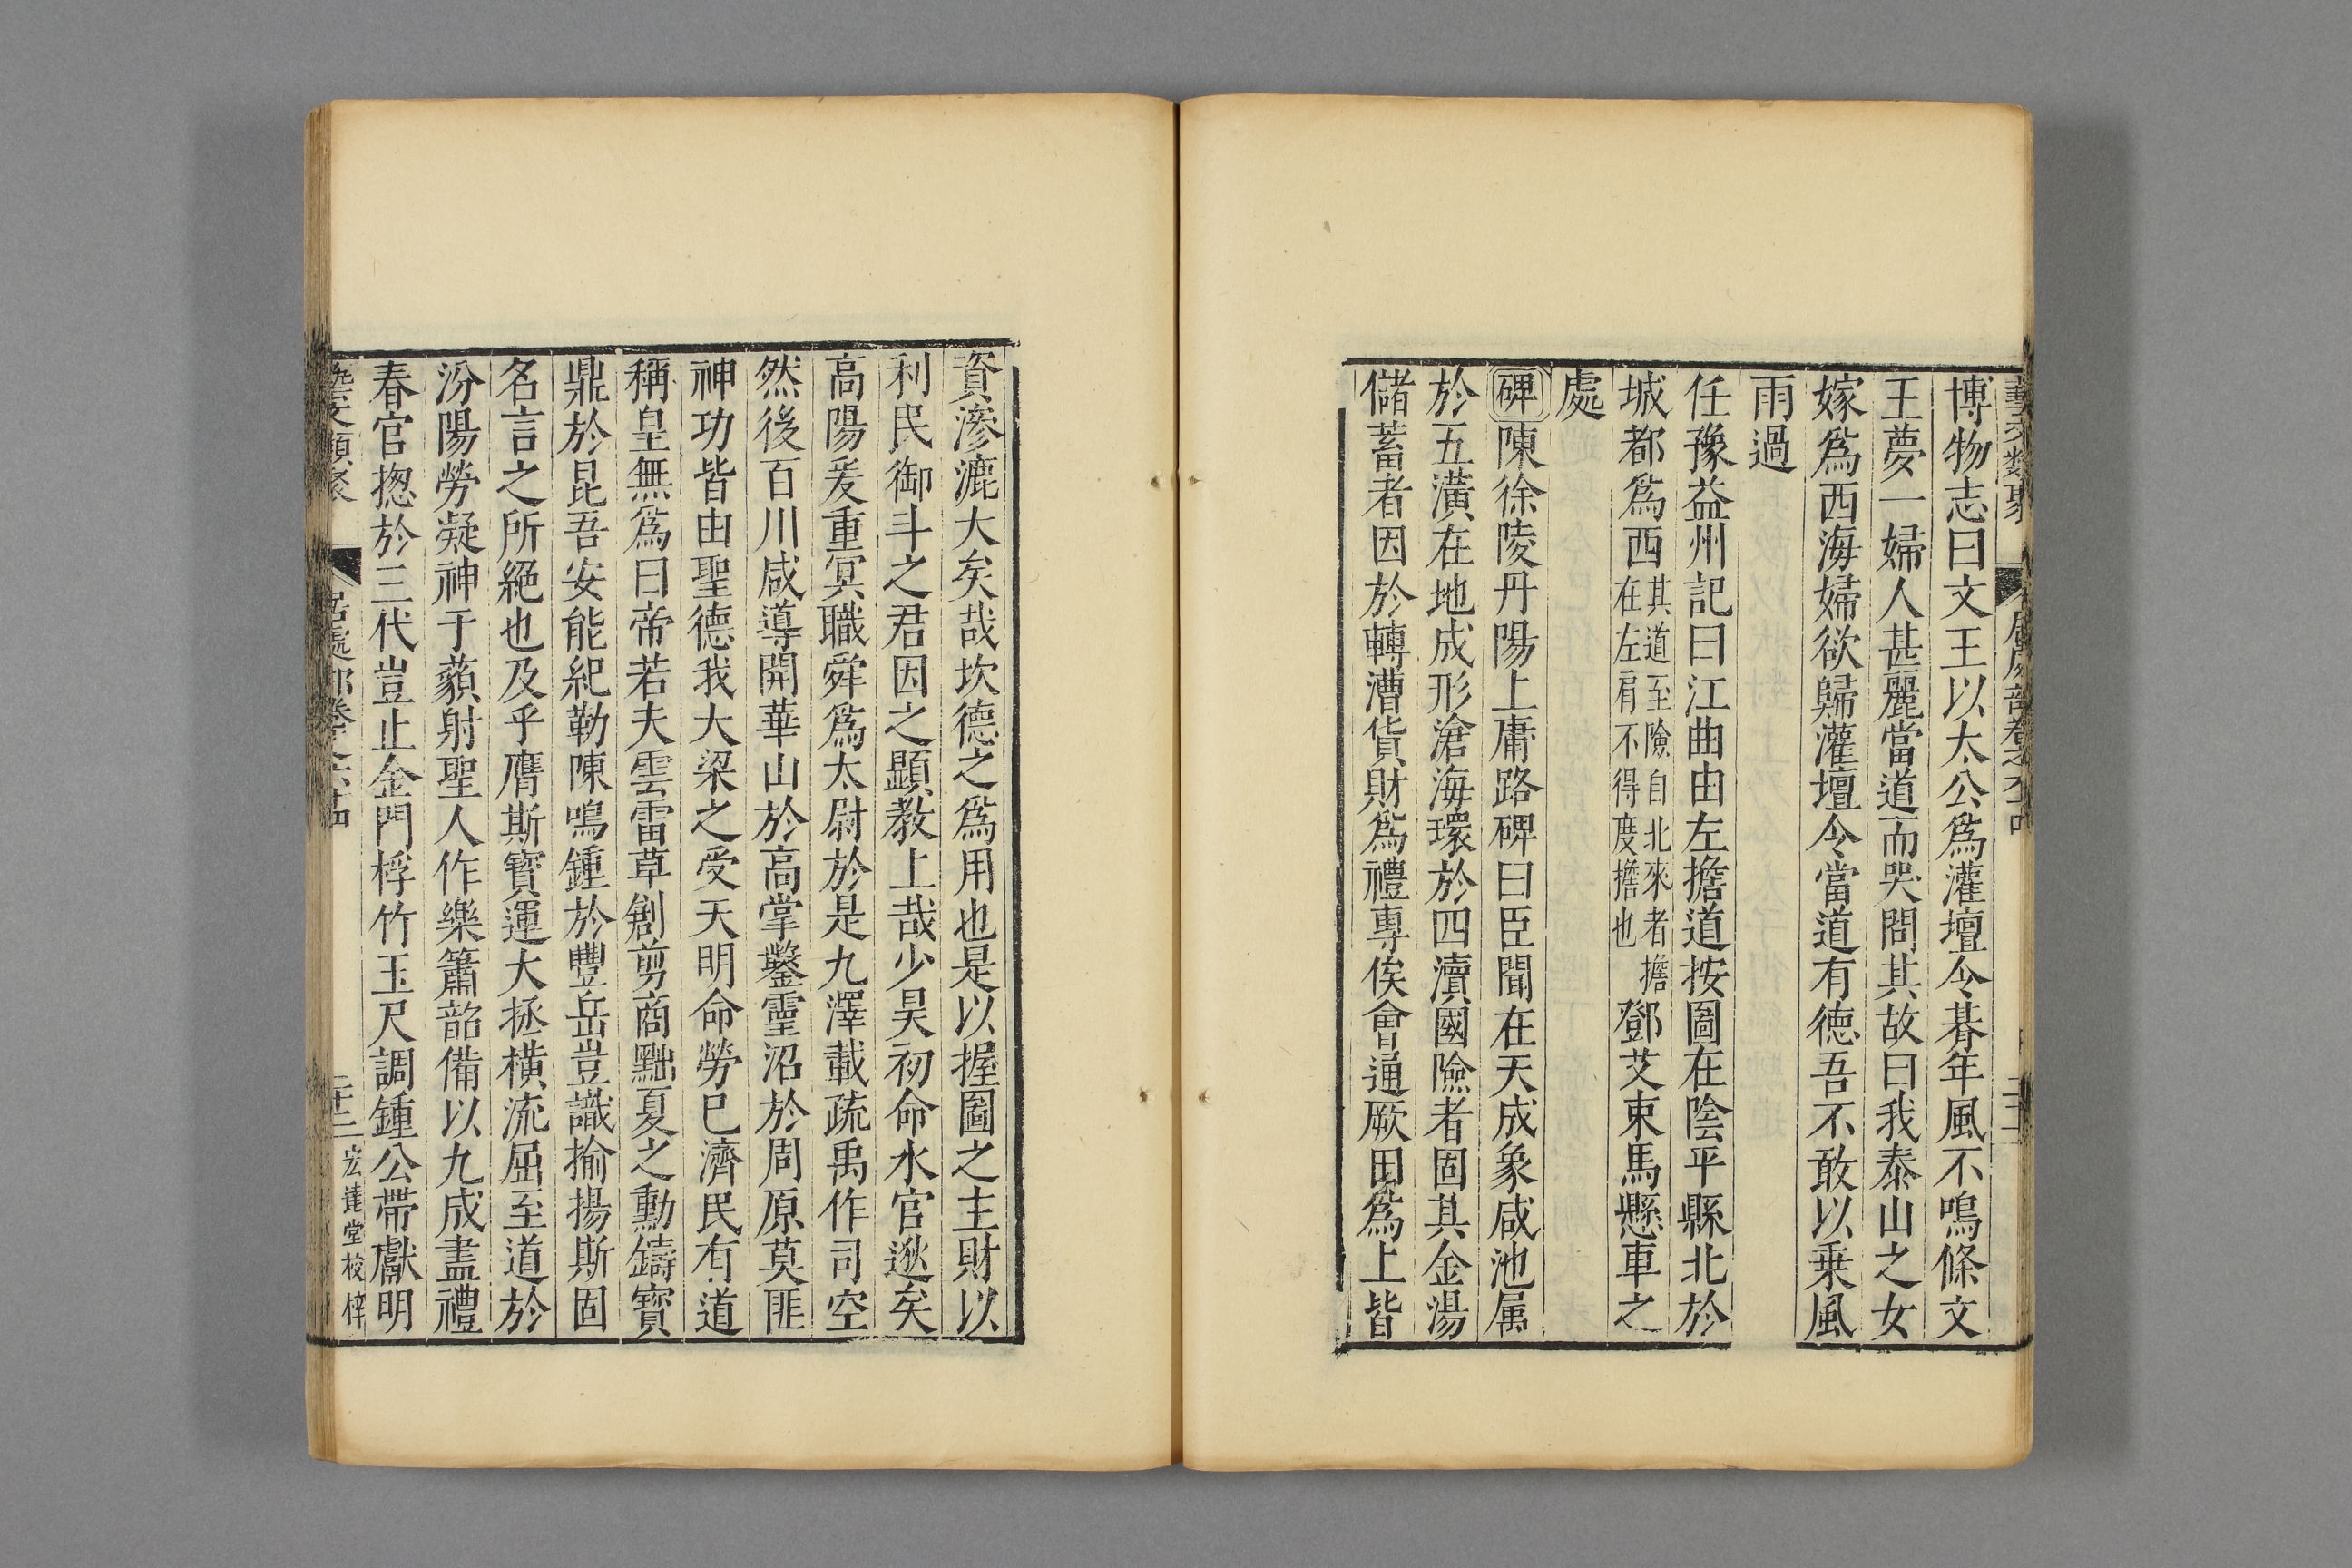 藝文類聚
居處部卷六十四
博物志曰文王以太公爲灌壇令朞年風不鳴條文
王夢一婦人甚麗當道而哭問其故曰我泰山之女
嫁爲西海婦欲歸灌壇令當道有德吾不敢以乗風
雨過
任豫益州記曰江曲由左擔道按圖在陰平縣北於
城都爲西其道至險自北來者擔在左肩不得度擔也鄧艾束馬懸車之
處
碑陳徐陵丹陽上庸路碑曰臣聞在天成象咸池属
於五潢在地成形滄海環於四瀆國險者固其金湯
儲蓄者因於轉漕貨財爲禮專俟會通厥田爲上皆
資滲漉大矣哉坎德之爲用也是以握圖之主財以
利民御斗之君因之顯教上哉少昊初命水官逖矣
高陽爰重冥職舜爲太尉於是九澤載疏禹作司空
然後百川咸導開華山於高掌鑿靈沼於周原莫匪
神功皆由聖德我大梁之受天明命勞已濟民有道
稱皇無爲曰帝若夫雲雷草創剪商黜夏之勳鑄寶
鼎於昆吾安能紀勒陳鳴鍾於豐岳豈識揄揚斯固
名言之所絕也及乎膺斯寶運大拯橫流屈至道於
汾陽勞凝神于藐射聖人作樂簫韶備以九成盡禮
春官揔於三代豈止金門桴竹玉尺調鍾公帶獻明
藝文類聚
居處部卷之六十四
二十二
宏達堂校梓